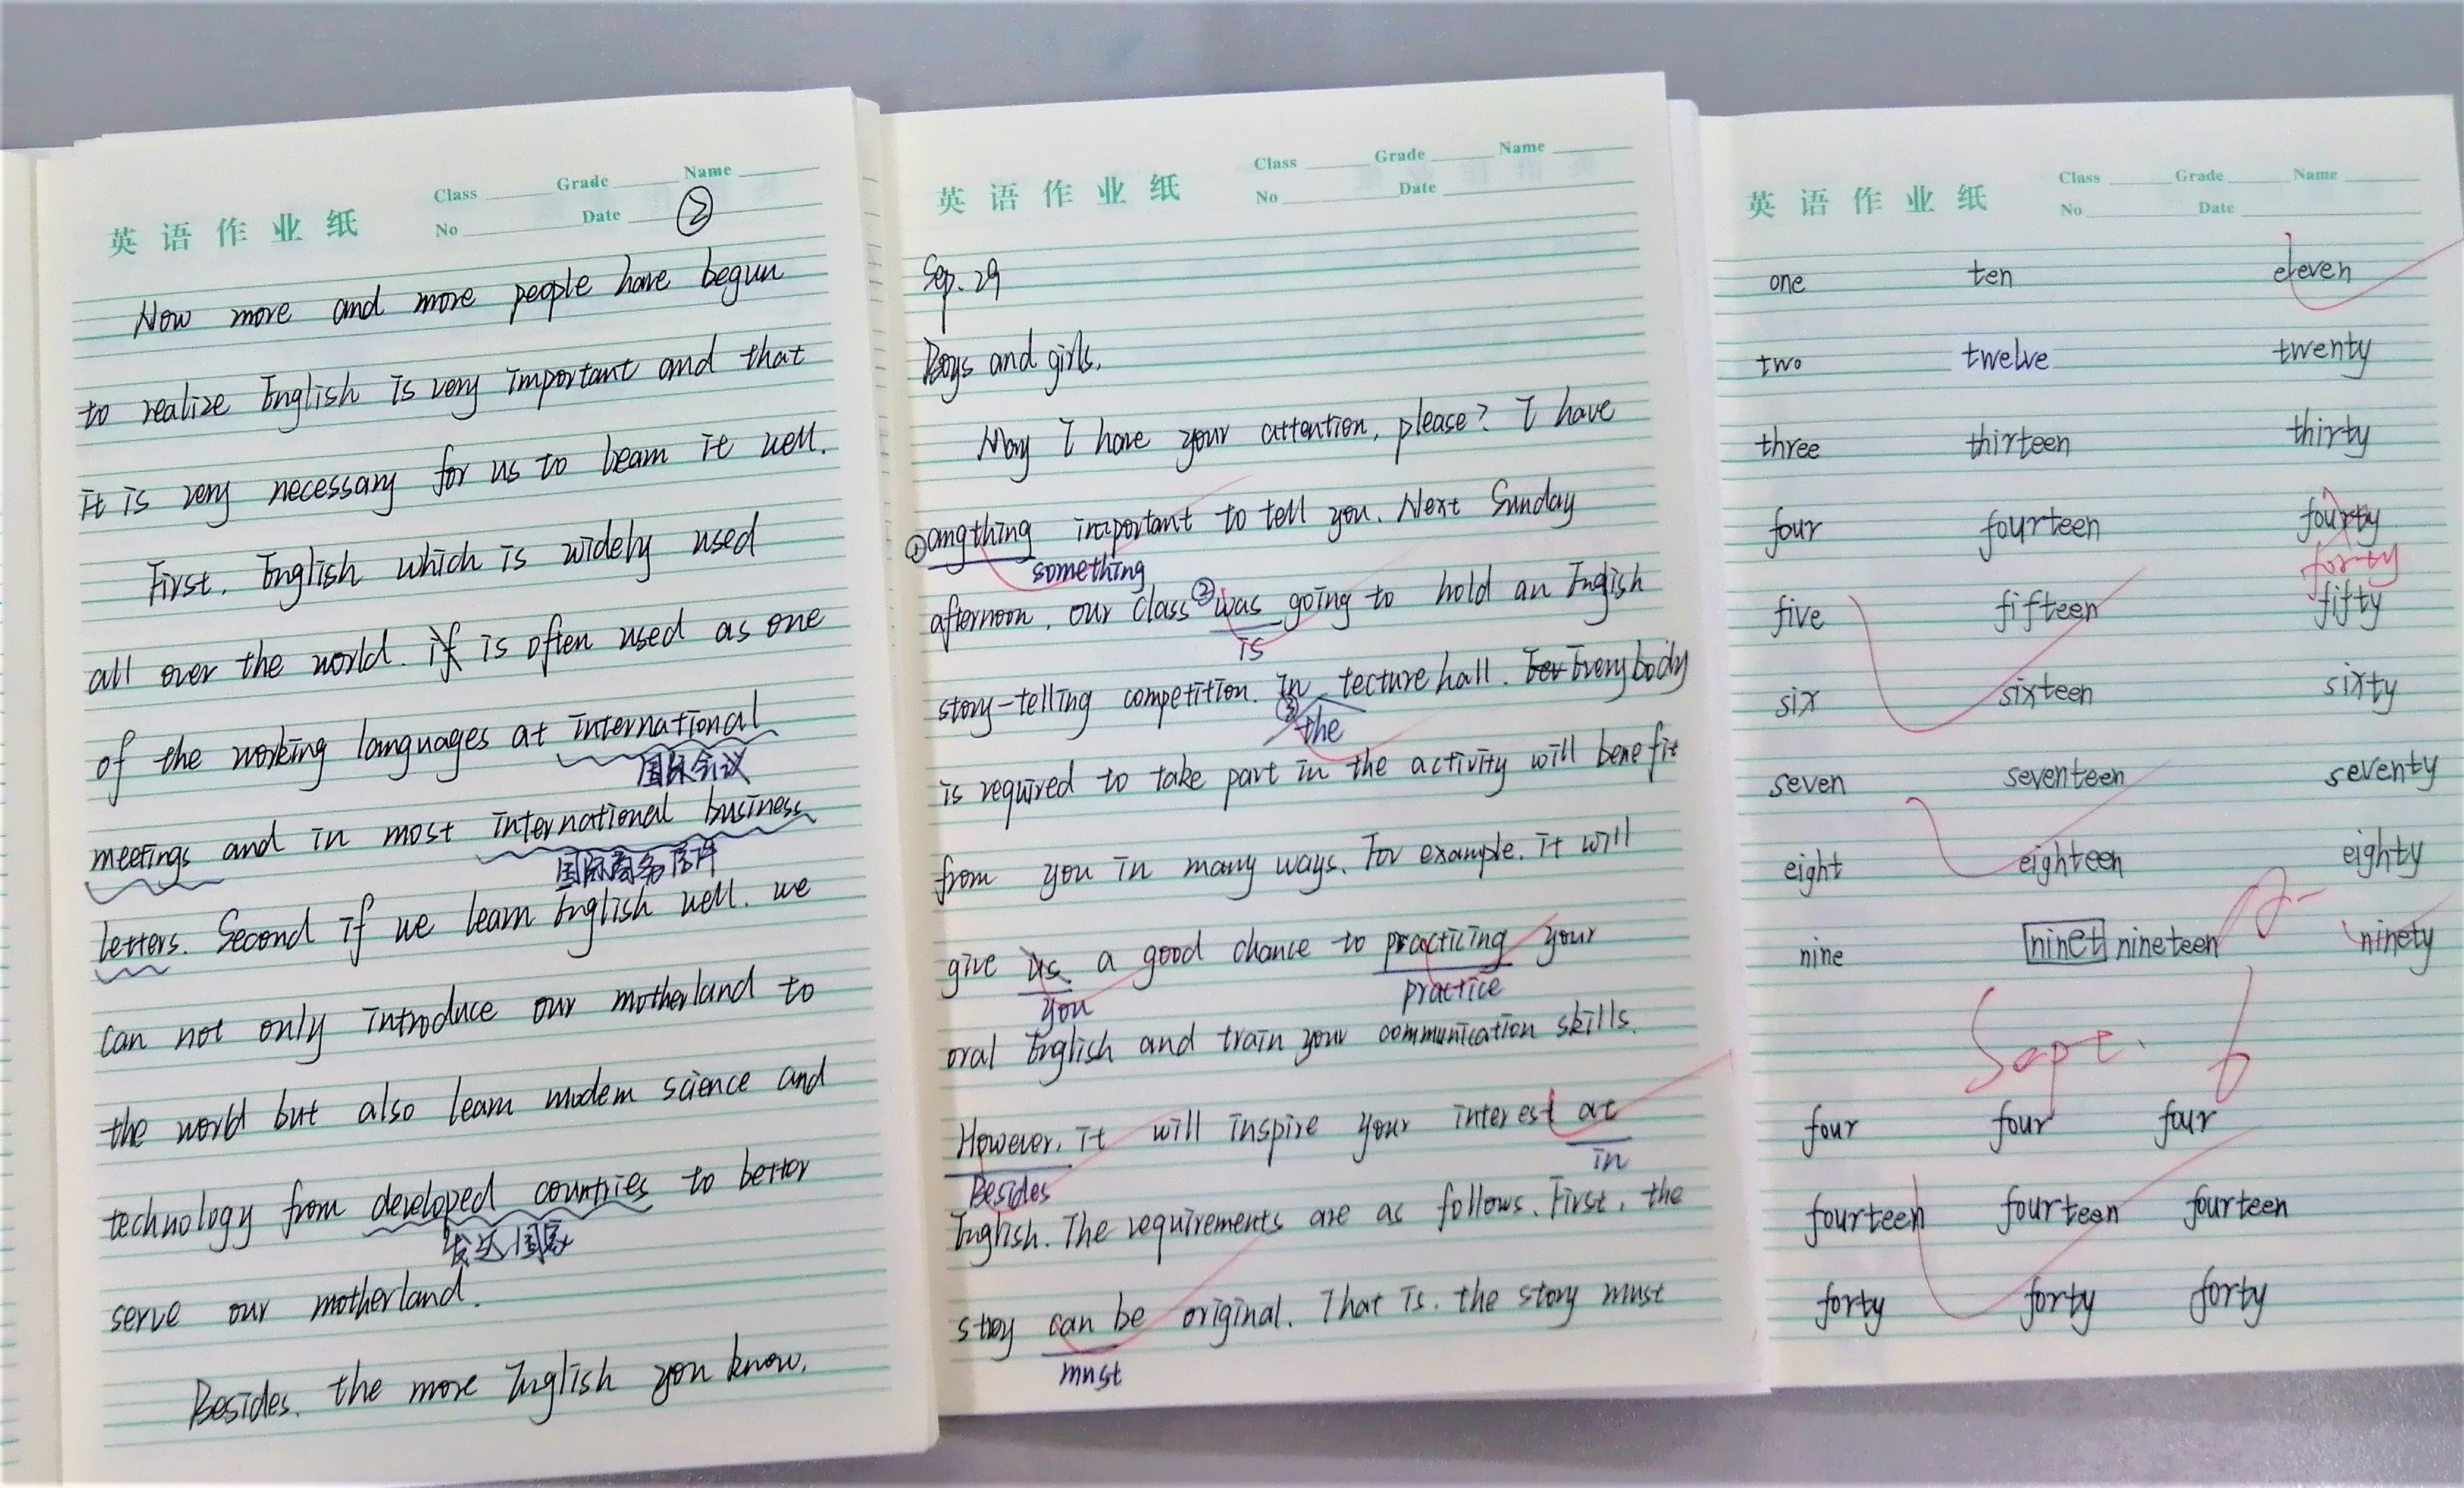 英语作业纸
Class Grade Name
No Date ②
Now more and more people have begun
to realize English is very important and that
it is very necessary for us to learn it well.
First, English which is widely used
all over the world. it is often used as one
of the working languages at international
国际会议
meetings and in most international business
国际商务信件
letters. Second if we learn English well. we
can not only introduce our motherland to
the world but also learn modern science and
technology from developed countries to better
发达国家
serve our motherland.
Besides, the more English you know,
英语作业纸
Class Grade Name
No Date
Sep. 29
Boys and girls,
May I have your attention, please? I have
①anything important to tell you. Next Sunday
something
afternoon, our class ②was going to hold an English
is
story-telling competition. in lecture hall. Everybody
③ the
is required to take part in the activity will benefit
from you in many ways. For example, it will
give us a good chance to practicing your
you practice
oral English and train your communication skills.
However, it will inspire your interest at
Besides in
English. The requirements are as follows. First, the
story can be original. That is, the story must
must
英语作业纸
Class Grade Name
No Date
one ten eleven
two twelve twenty
three thirteen thirty
four fourteen fourty
forty
five fifteen fifty
six sixteen sixty
seven seventeen seventy
eight eighteen eighty
nine ninet nineteen ninety
Sept. 6
four four four
fourteen fourteen fourteen
forty forty forty